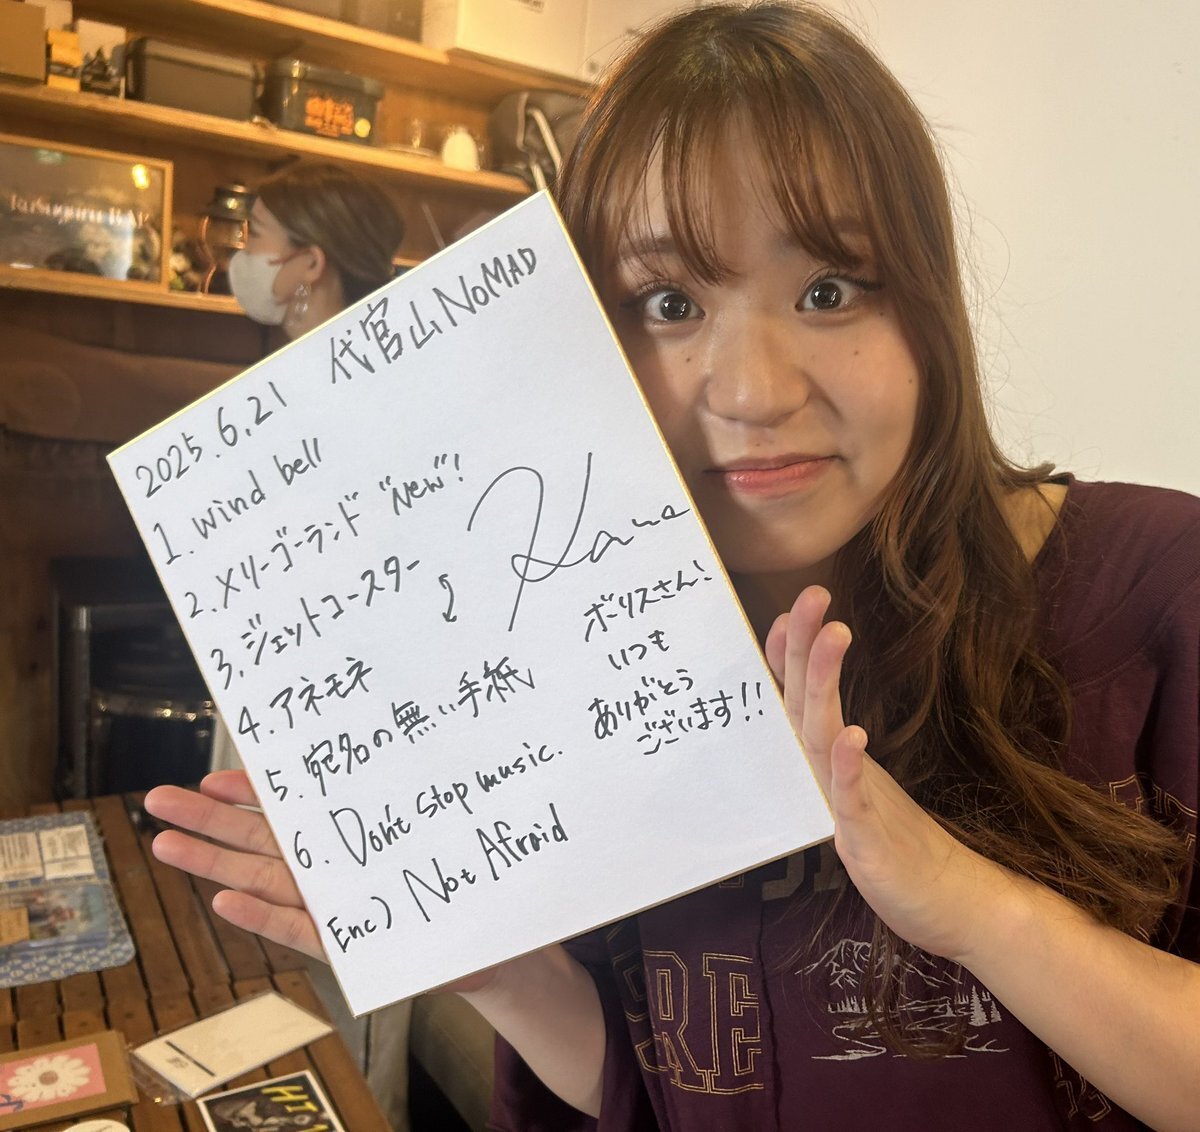 2025.6.21 代官山NoMAD
1. wind bell
2. メリーゴーランド "New"!
3. ジェットコースター
4. アネモネ
5. 宛名の無い手紙
6. Don't stop music.
Enc) Not Afraid
Kana
ボリスさん!
いつも
ありがとう
ございます!!
BAR
RE
HI